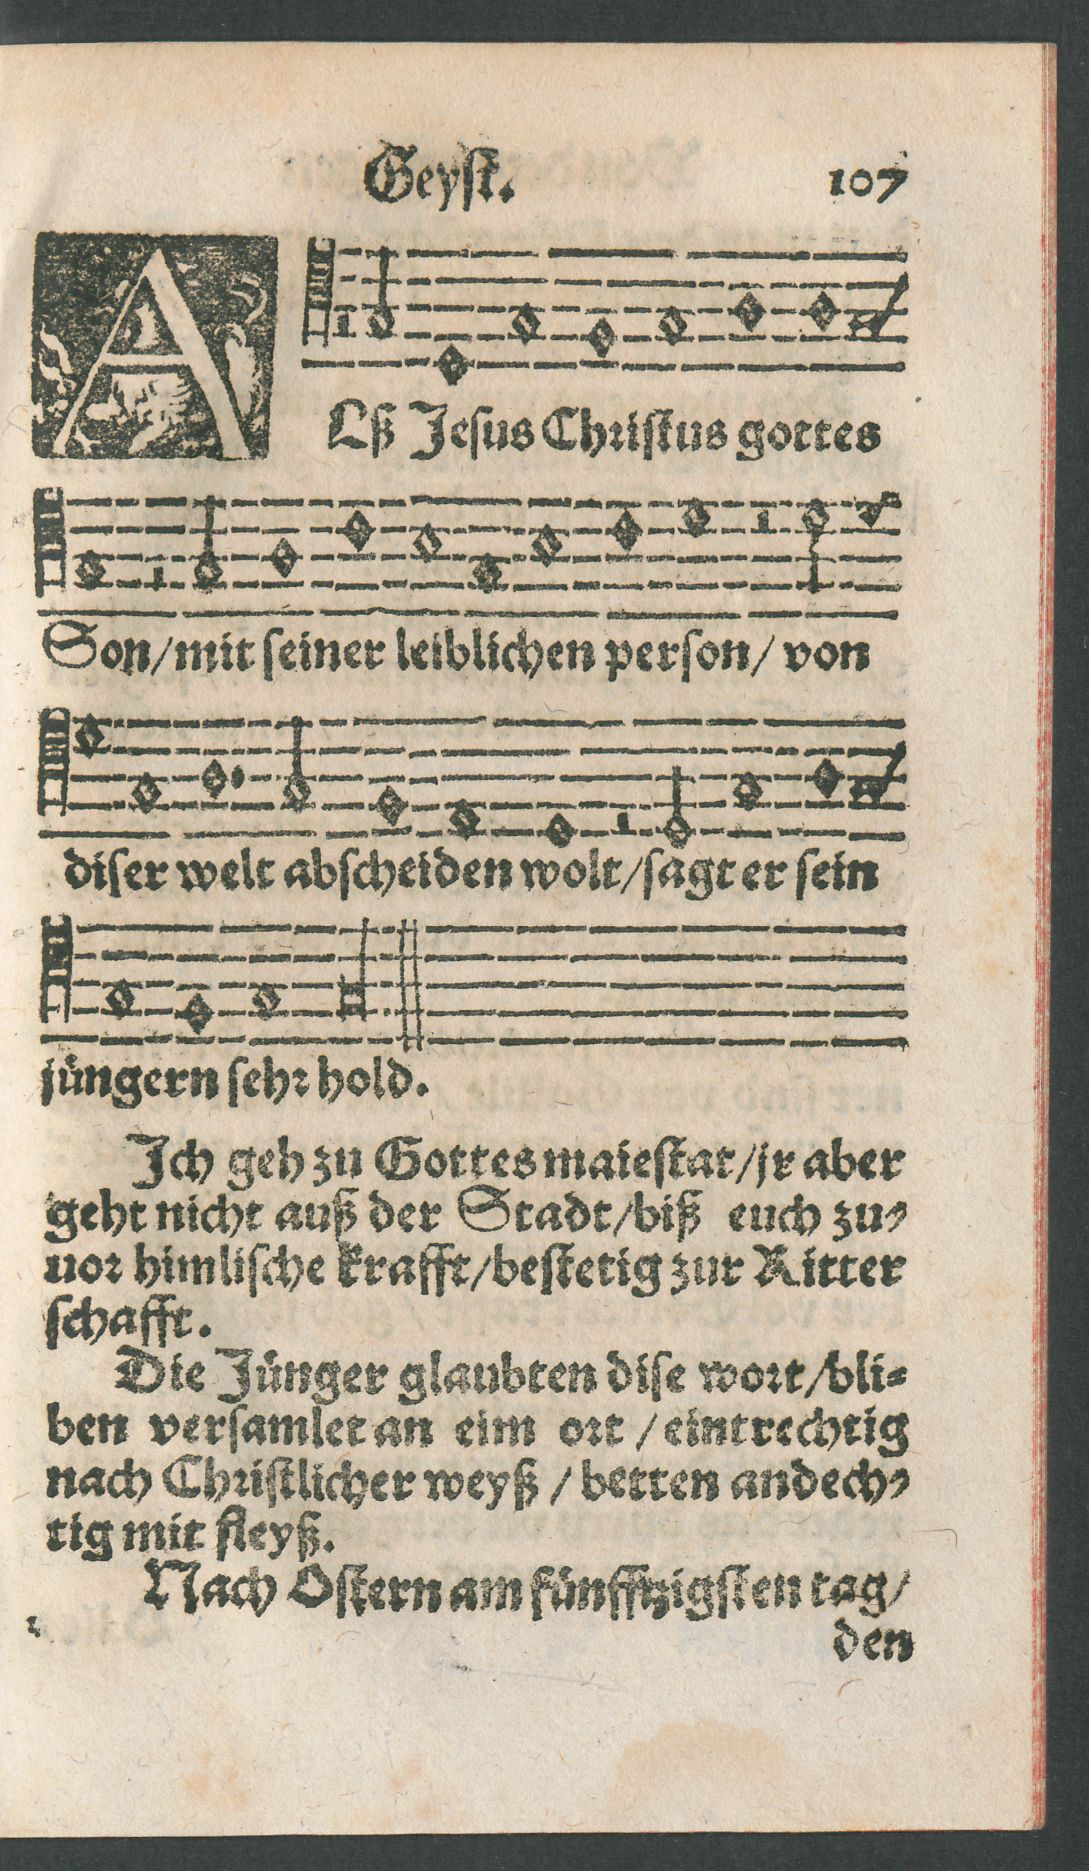 Geyst. 107
ALß Jesus Christus gottes
Son/mit seiner leiblichen person/ von
diser welt abscheiden wolt/sagt er sein
jüngern sehr hold.
Ich geh zu Gottes maiestat/jr aber
geht nicht auß der Stadt/biß euch zu⸗
uor himlische krafft/bestetig zur Ritter
schafft.
Die Jünger glaubten dise wort/bli⸗
ben versamlet an eim ort / eintrechtig
nach Christlicher weyß / betten andech⸗
tig mit fleyß.
Nach Ostern am fünfftzigsten tag/
den